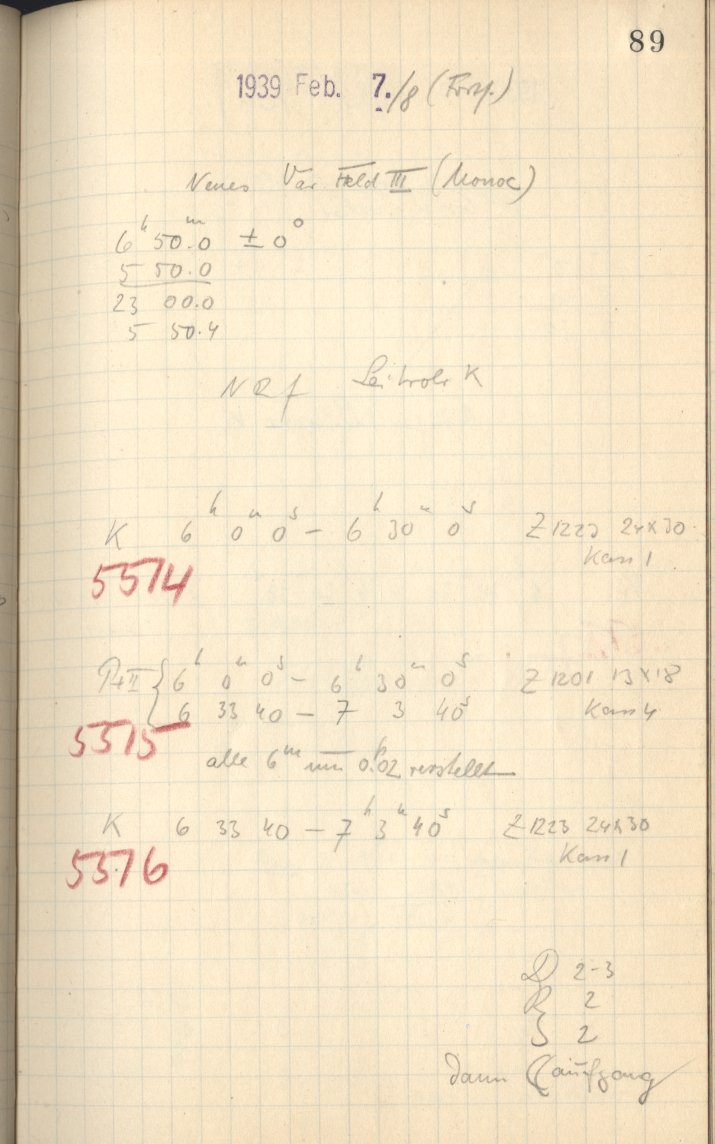 89
1939 Feb. 7./8 (Forts.)
Neues Var Feld III (Monoc)
6ʰ 50.0ᵐ ± 0°
5 50.0
23 00.0
5 50.4
Leitrohr K
K 6ʰ 0ᵐ 0ˢ – 6ʰ 30ᵐ 0ˢ Z 1223 24x30
Kass 1
5514
6ʰ 0ᵐ 0ˢ – 6ʰ 30ᵐ 0ˢ Z 1201 13x18
6 33 40 – 7 3 40ˢ Kass 4
5515
alle 6ᵐ um 0.02 verstellt
K 6 33 40 – 7ʰ 3ᵐ 40ˢ Z 1223 24x30
Kass 1
5516
D 2-3
R 2
S 2
dann ☾ aufgang